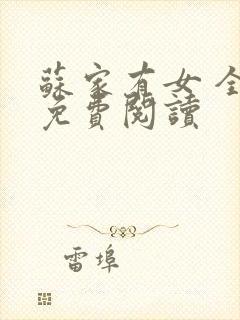 蘇家有女全
免費閱讀
雷埠